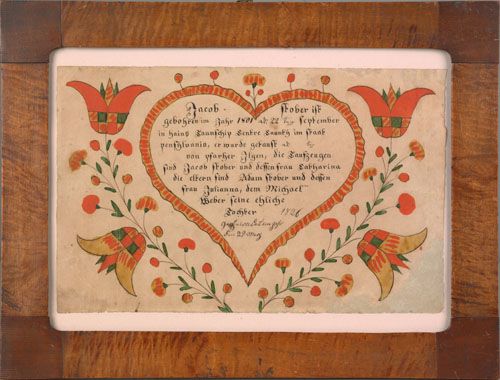 Jacob Stober ist
gebohren im Jahr 1801 d: 22 September
in hains Taunschip Centre Caunty im staat
pensylvania, er wurde getauft d:
von pfarher Ilgen, die Taufzeugen
sind Jacob stober und dessen frau Catharina
die eltern sind Adam stober und dessen
frau Julianna, dem Michael
Weber seine ehliche
Tochter 1826